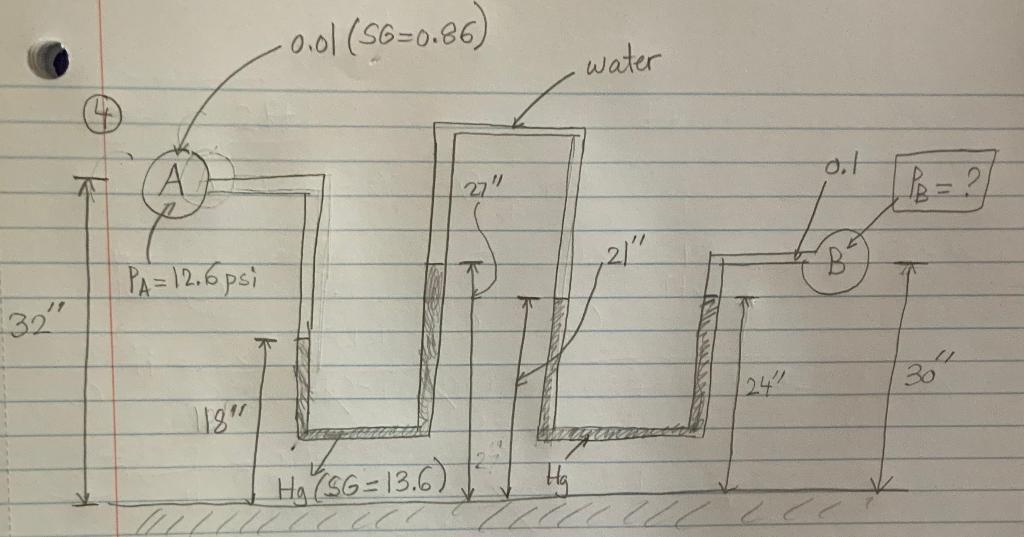 0.01 (SG=0.86)
water
4
A
27"
0.1
P_B = ?
P_A = 12.6 psi
21"
B
32"
18"
24"
30"
Hg (SG=13.6)
Hg